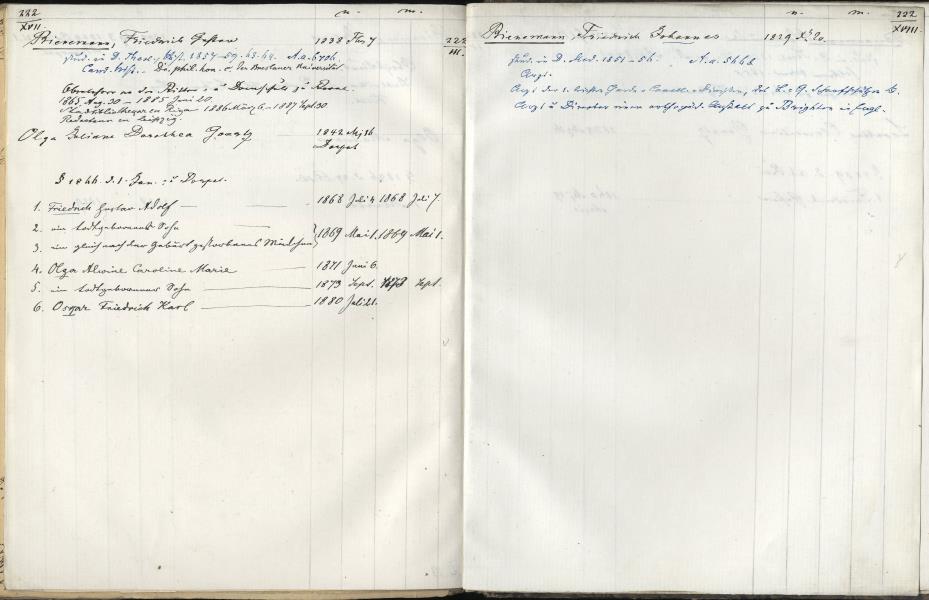 222
XVII.
n.
m.
Bienemann, Friedrich Gustav 1838
222
III
stud. in D. Theol., Hist. 1857-59. 63-64. A.a. 6706.
Cand. Dr. phil. hon. c. der Breslauer Universität.
Oberlehrer an der Ritter- u Domschule zu Reval.
1865 Aug. 30 – 1885 Juni 20.
Stadtbibliothekar in Riga 1886 März 6 – 1887 Sept 30
Redacteur in Leipzig.
Olga Juliane Dorothea 1842
Dorpat
1866 d. 1. Jan. zu Dorpat.
1. Friedrich Gustav Adolf 1868 Juli 4 1868 Juli 7.
2. ein todtgeborener Sohn
1869 Mai 1. 1869 Mai 1.
3. ein gleich nach der Geburt gestorbenes Mädchen
4. Olga Alwine Caroline Marie 1871 Juni 6.
5. ein todtgeborener Sohn 1873 Sept. 1873 Sept.
6. Oscar Friedrich Karl 1880 Juli 21.
n.
m.
222
XVIII.
Bienemann, Friedrich Johannes 1829
stud. in D. Med. 1851-56. A.a. 5668
Arzt.
Arzt der
Arzt u Director einer orthopäd. Anstalt zu Brighton in Engl.